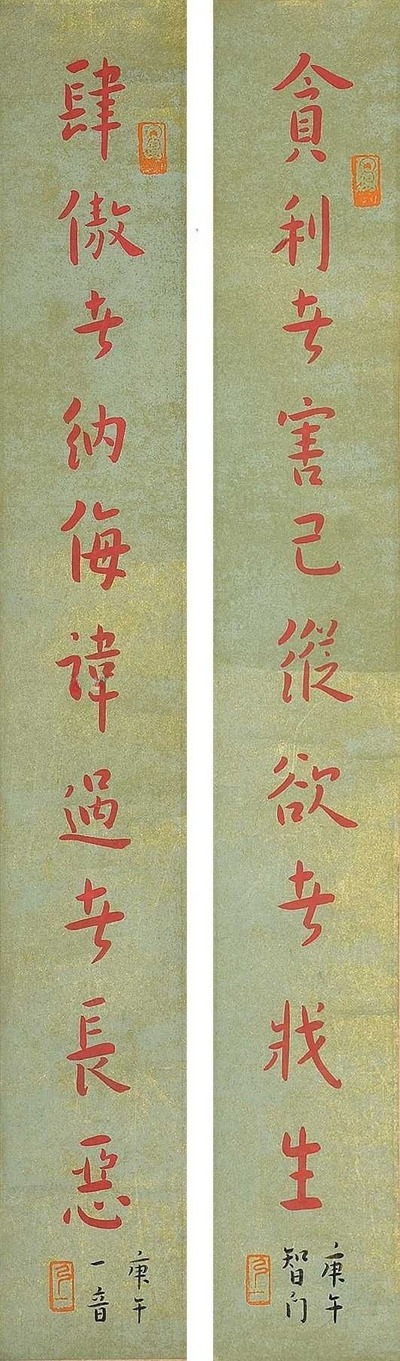 貪利者害己縱欲者戕生
庚午
智门
肆傲者納侮諱過者長惡
庚午
一音